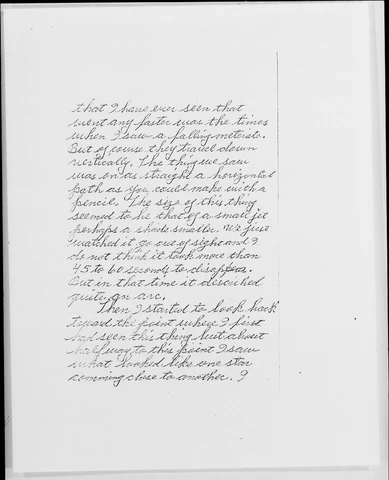 that I have ever seen that
went any faster was the times
when I saw a falling meterite.
But of course they travel down
vertically. The thing we saw
was on as straight a horizontal
path as you could make with a
pencil. The size of this thing
seemed to be that of a small jet
perhaps a shade smaller. We just
watched it go out of sight and I
do not think it took more than
45 to 60 seconds to disappea.
But in that time it described
quite an arc.
Then I started to look back
toward the point where I first
had seen this thing but about
half way to this point I saw
what looked like one star
comming close to another. I